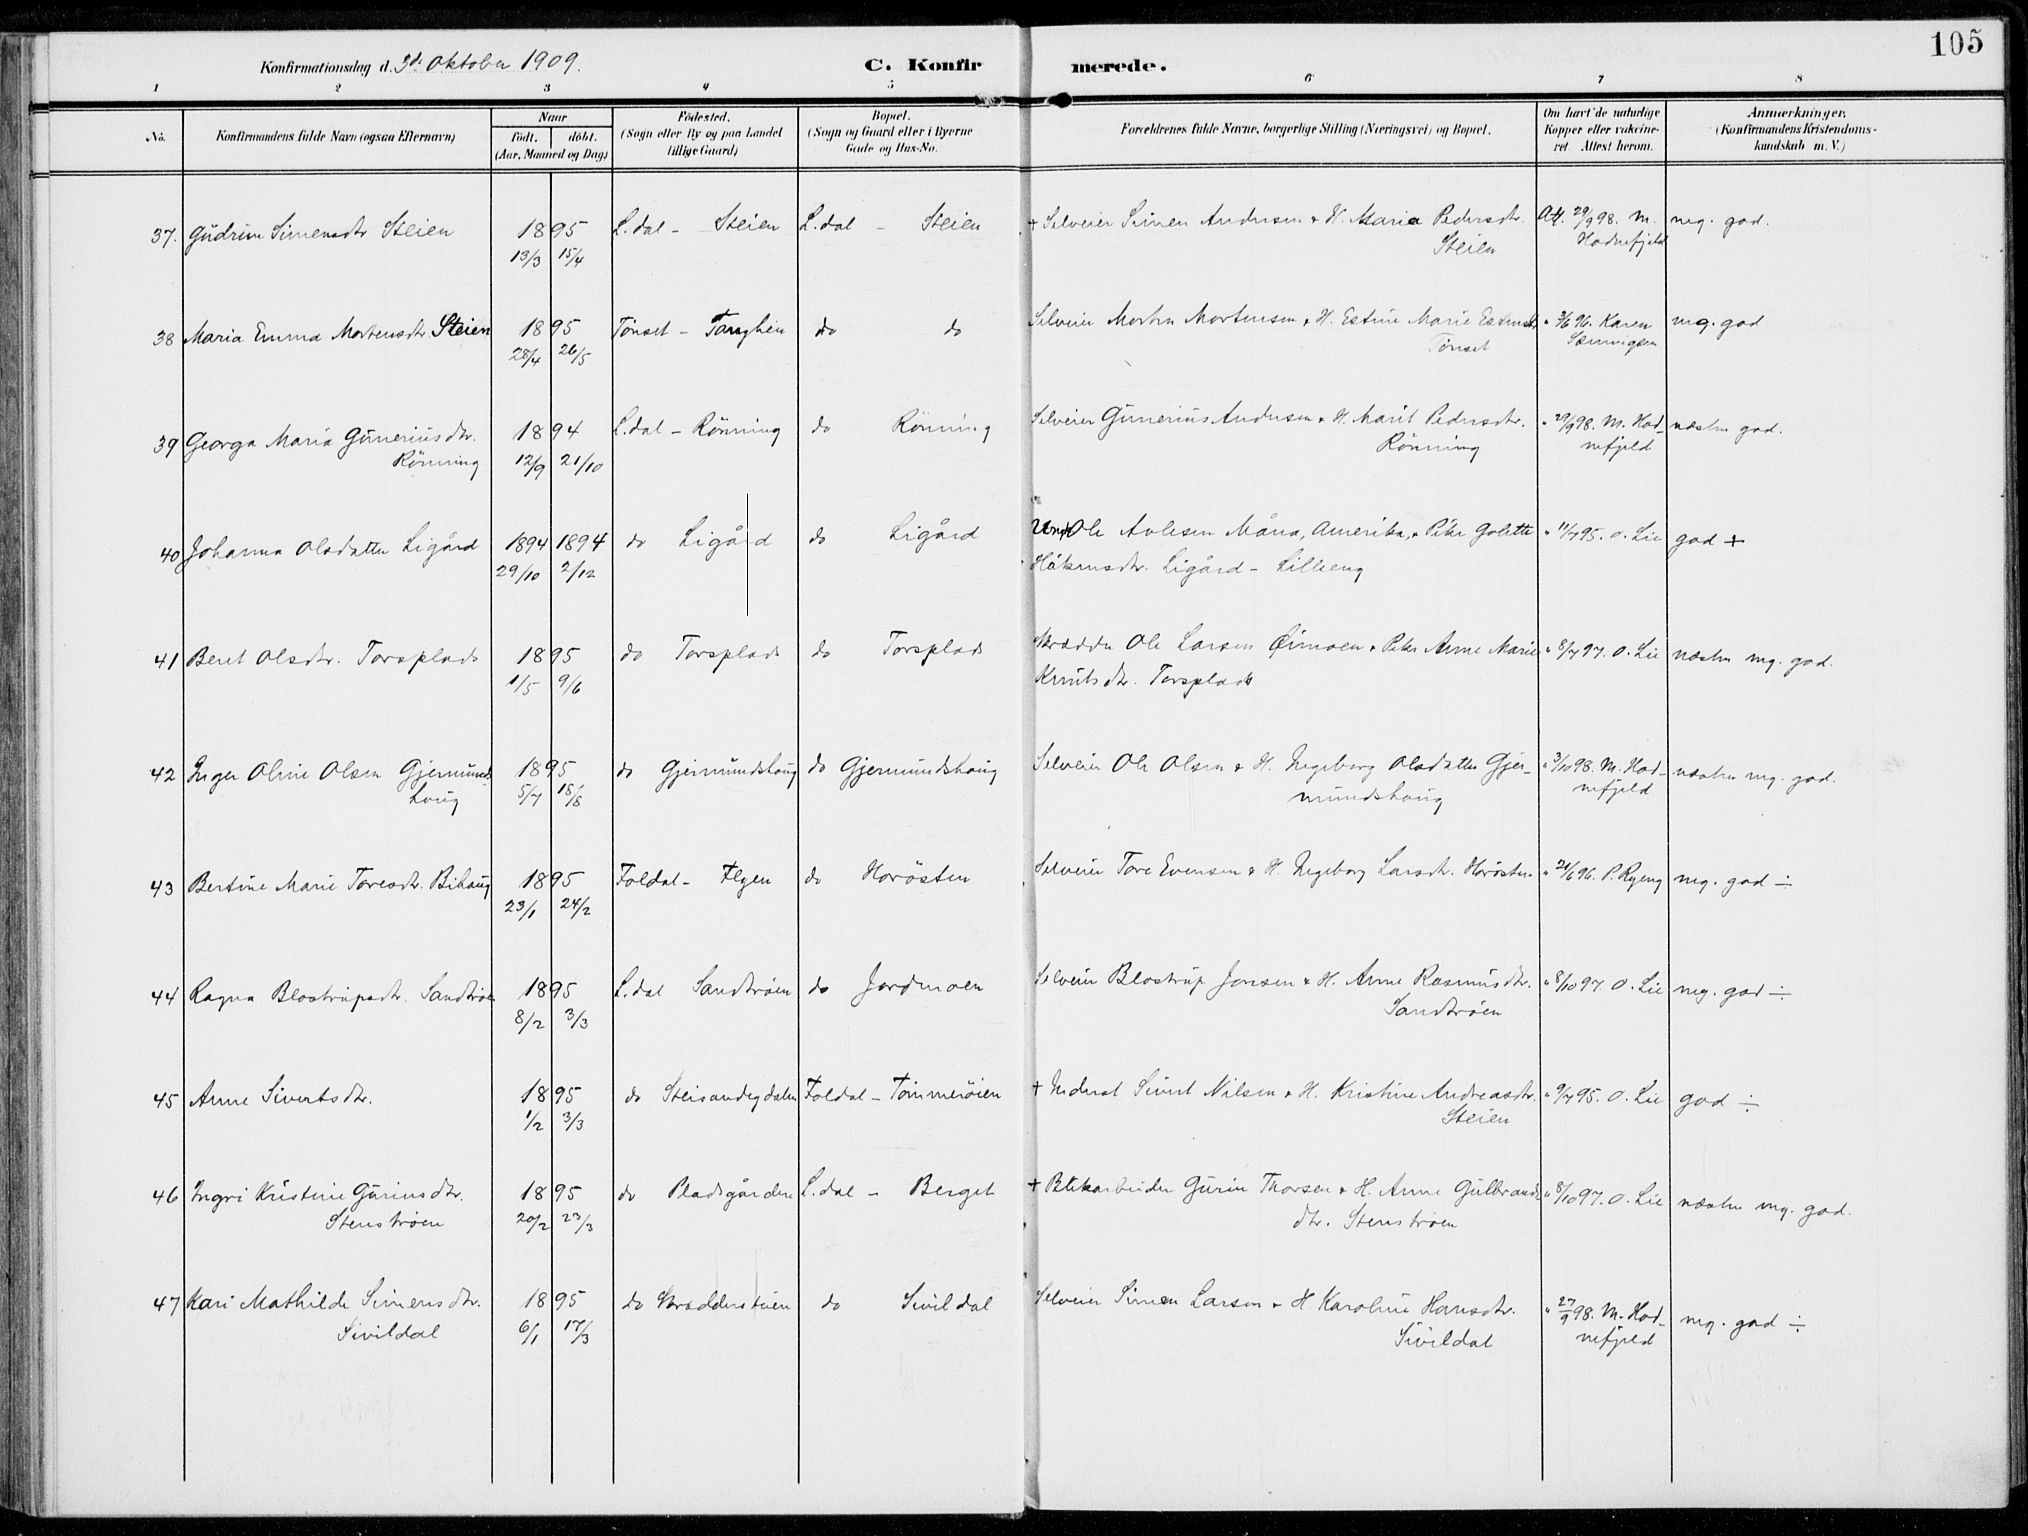 105
Konfirmationsdag d. 3de Oktober 1909.
C. Konfirmerede.
1 2 3 4 5 6 7 8
No.
Konfirmandens fulde Navn (ogsaa Efternavn)
Naar
født. døbt.
(Aar, Maaned og Dag)
Fødested.
(Sogn eller By og paa Landet
tillige Gaard)
Bopæl.
(Sogn og Gaard eller i Byerne
Gade og Hus-No.
Forældrenes fulde Navne, borgerlige Stilling (Næringsvei) og Bopæl.
Om havt de naturlige
Kopper eller vakcine-
ret. Attest herom.
Anmærkninger.
(Konfirmandens Kristendoms-
kundskab m. V.)
37. Gudrun Simensdtr Steien 1895 L.dal - Steien L.dal - Steien + Selveier Simen Andersen & H. Maria Pedersdtr. Att. 29/9 98. M. mg. god.
13/3 15/4 Steien Hodnefjeld
38 Maria Emma Mortensdtr. Steien 1895 Tönset - Tanghein do do Selveier Morten Mortensen & H. Estrine Marie " 3/6 96. Karen mg. god
28/4 26/5 Tönset
39 Georga Maria Guneriusdtr. 1894 L.dal - Rönning do Rönning Selveier Gunerius Andersen & H. Marit Pedersdtr. " 29/9 98. M. Hod- næsten god.
Rönning 12/9 21/10 Rönning nefjeld
40 Johanna Olsdatter Ligård 1894 1894 do Ligård do Ligård Ungk Ole Avlesen Måna, Amerika, & Pike Golette " 11/7 95. O. Lie god +
29/10 2/12 Håkensdtr. Ligård - Lillieng
41 Beret Olsdtr. Torsplads 1895 do Torsplads do Torsplads Skrædder Ole Larsen Öimoen & Pike Anne Marie " 8/7 97. O. Lie næsten mg. god.
1/5 9/6 Knutsdtr. Torsplads
42 Inger Oline Olsen Gjermunds- 1895 do Gjermundshaug do Gjermundshaug Selveier Ole Olsen & H. Ingeborg Olsdatter Gjer- " 3/10 98. M. Hod- næsten mg. god.
haug 5/7 18/8 mundshaug nefjeld
43 Bertine Marie Toresdtr. Bihaug 1895 Foldal - Flyen do Horösten Selveier Tore Evensen & H. Ingeborg Larsdtr. Horösten " 21/6 96. P. Ryeng mg. god ÷
23/1 24/2
44 Ragna Blostrupsdtr. Sandtröen 1895 L.dal Sandtröen do Jordmoen Selveier Blostrup Jonsen & H. Anne Rasmusdtr. " 8/10 97. O. Lie mg. god ÷
8/2 3/3 Sandtröen
45 Anne Sivertsdtr. 1895 do Foldal - Tömmeröien + Inderst Sivert Nilsen & H. Kristine Andreasdtr. " 9/7 95. O. Lie god ÷
1/2 3/3 Steien
46 Ingri Kristine Gurinusdtr. 1895 do Pladsgården L.dal - Berget + Blikarbeider Gurin Thorsen & H. Anne Gulbrands " 8/10 97. O. Lie næsten mg. god.
Stenströen 20/2 23/3 dtr. Stenströen
47 Kari Mathilde Simensdtr. 1895 do Skrædderstuen do Sivildal Selveier Simen Larsen & H Karoline Hansdtr. " 27/9 98. M. Hod- mg. god ÷
Sivildal 6/1 17/3 Sivildal nefjeld